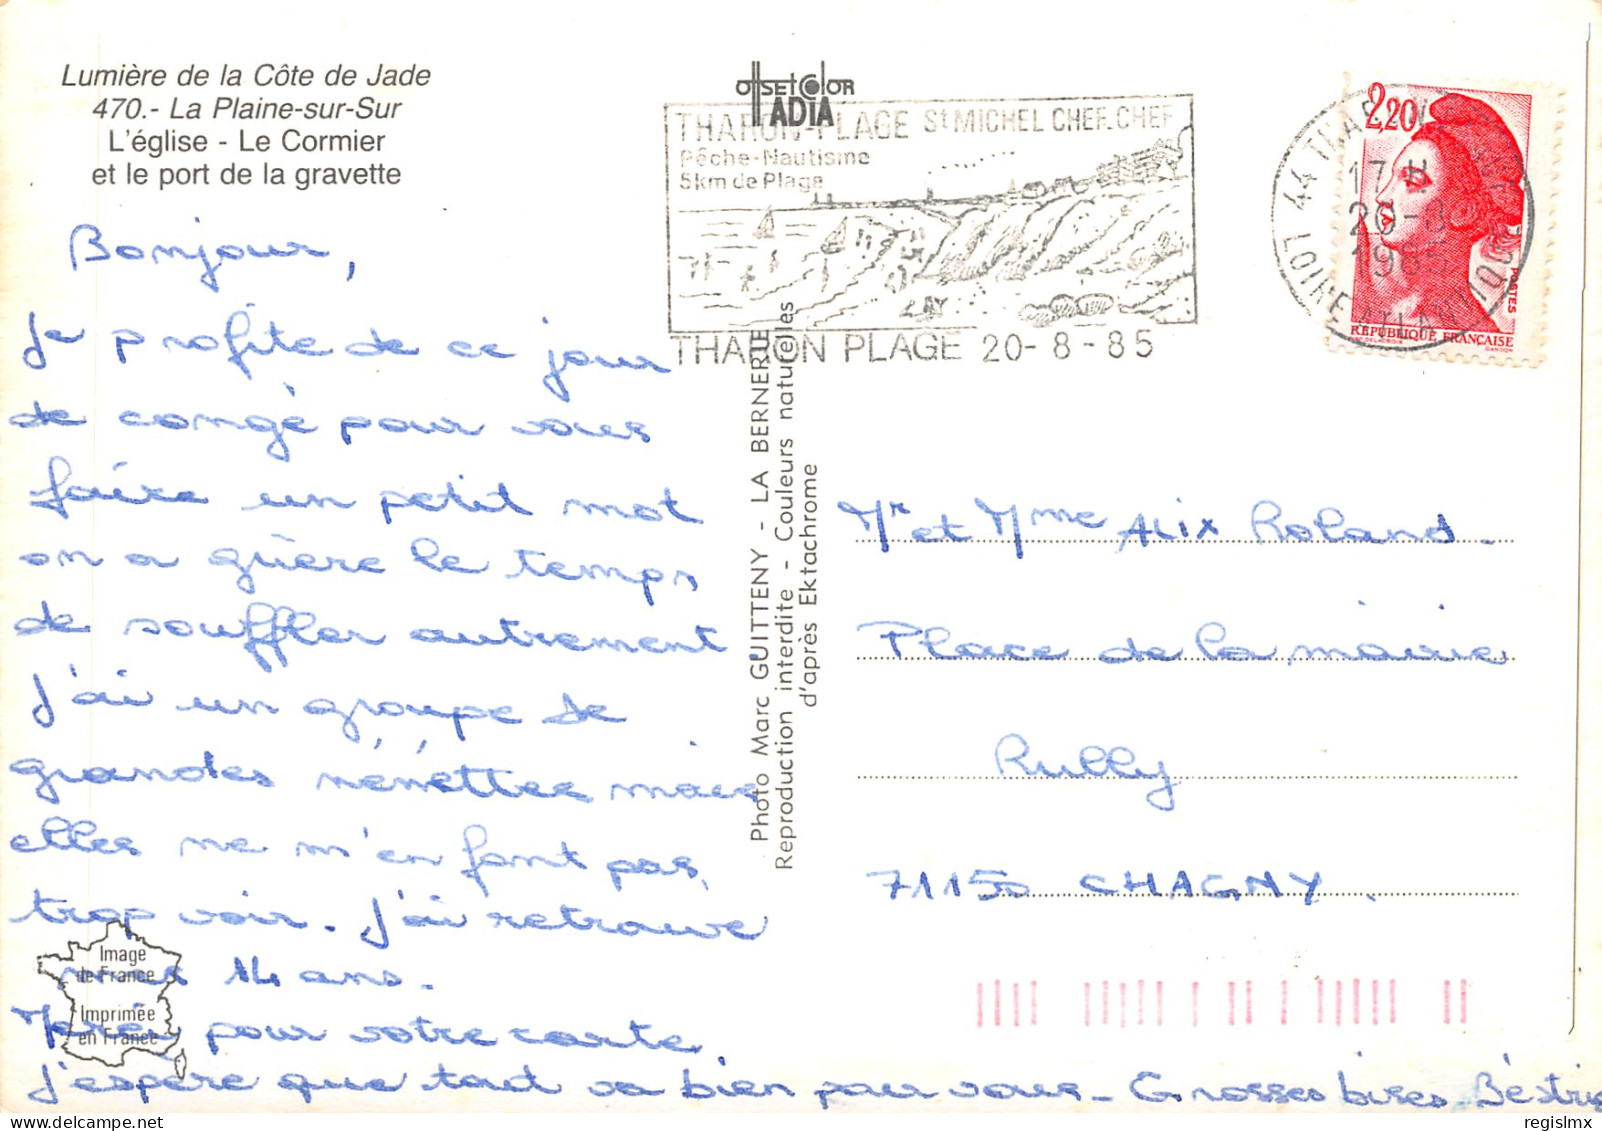 Lumière de la Côte de Jade
470.- La Plaine-sur-Sur
L'église - Le Cormier
et le port de la gravette
OffsetColor
IADIA
THARON-PLAGE St MICHEL CHEF.CHEF
Pêche-Nautisme
5km de Plage
THARON PLAGE 20-8-85
44 THAR
17 H
20-8
1985
LOIRE ATLANTIQUE
2,20
POSTES
REPUBLIQUE FRANÇAISE
GANDON
Bonjour,
Je profite de ce jour
de congé pour vous
faire un petit mot
on a guère le temps
de souffler autrement
J'ai un groupe de
grandes nénettes mais
elles ne m'en font pas
trop voir. J'ai retrouvé
mes 14 ans.
Merci pour votre carte
J'espère que tout va bien pour vous - Grosses bises - Béatris
Photo Marc GUITTENY - LA BERNERIE
Reproduction interdite - Couleurs naturelles
d'après Ektachrome
Mr et Mme Alix Roland.
Place de la mairie
Rully
71150 CHAGNY.
Image
de France
Imprimée
en France
regislmx